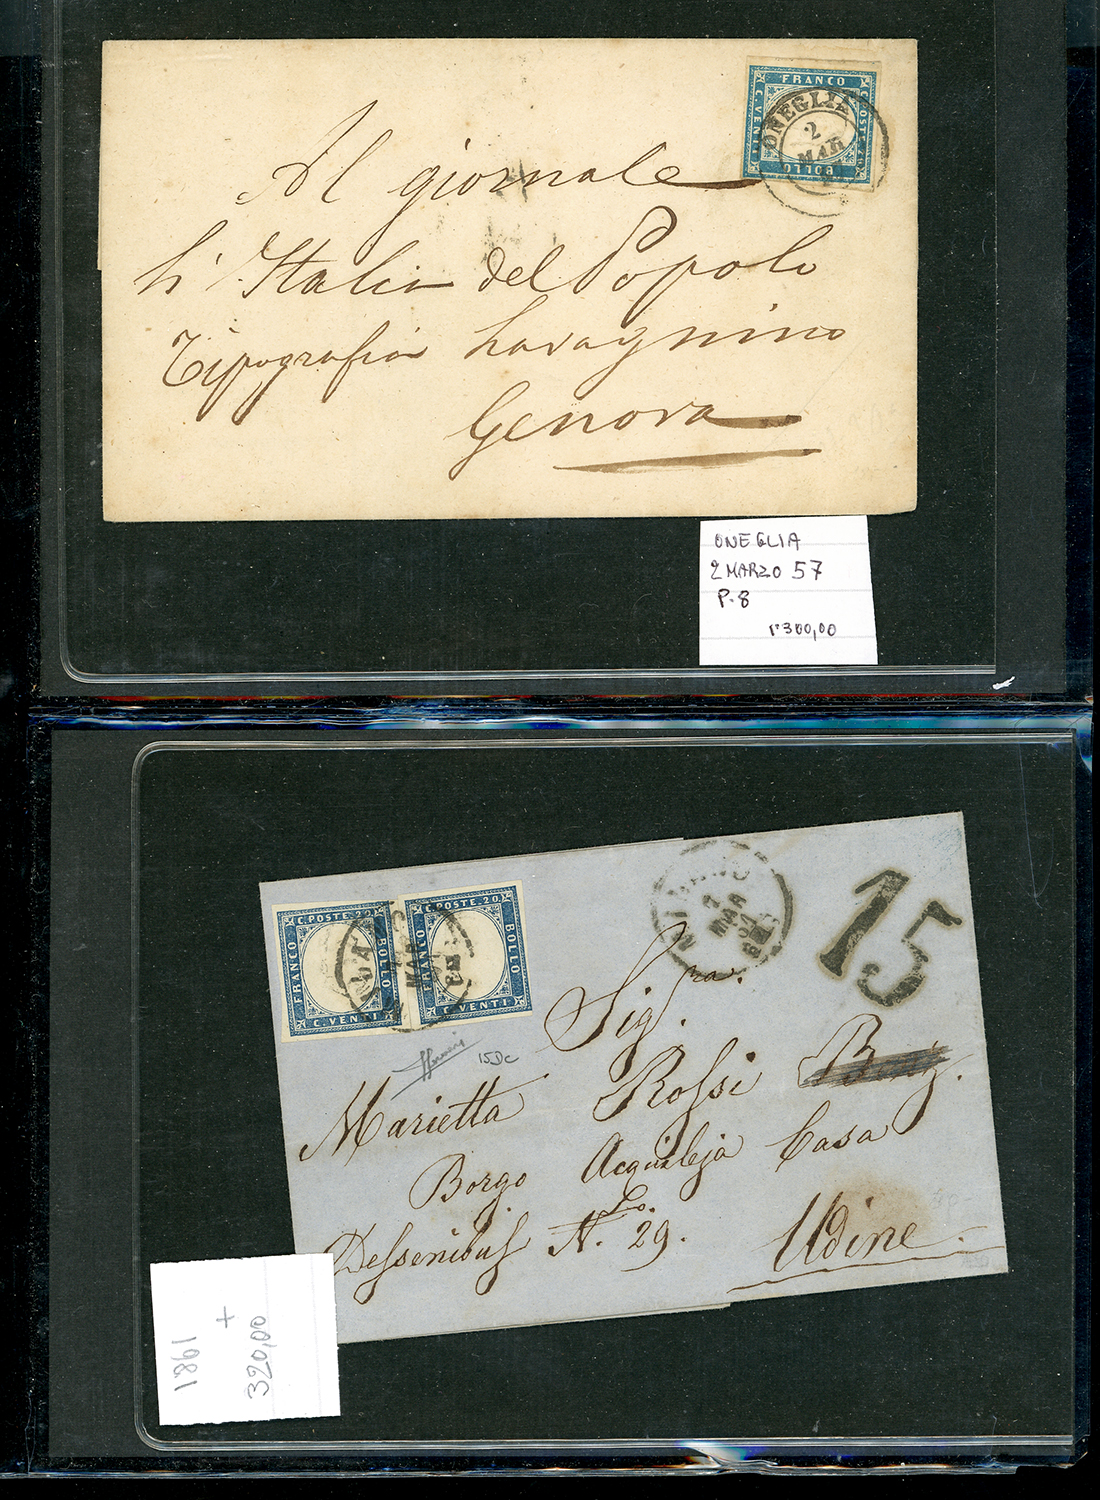 FRANCO
C. POSTE. 20.
C. VENTI
BOLLO
ONEGLIA
2
MAR
Al giornale
L'Italia del Popolo
Tipografia Lavagnino
Genova
ONEGLIA
2 MARZO 57
P.8
300,00
C. POSTE. 20.
FRANCO
BOLLO
C. VENTI
C. POSTE. 20.
FRANCO
BOLLO
C. VENTI
MILANO
7
MAR
61
15
Sig.ra.
15Dc
Marietta Rossi
Borgo Acquileja Casa
Dessenibus N.o. 29.
Udine.
1861
+
320,00